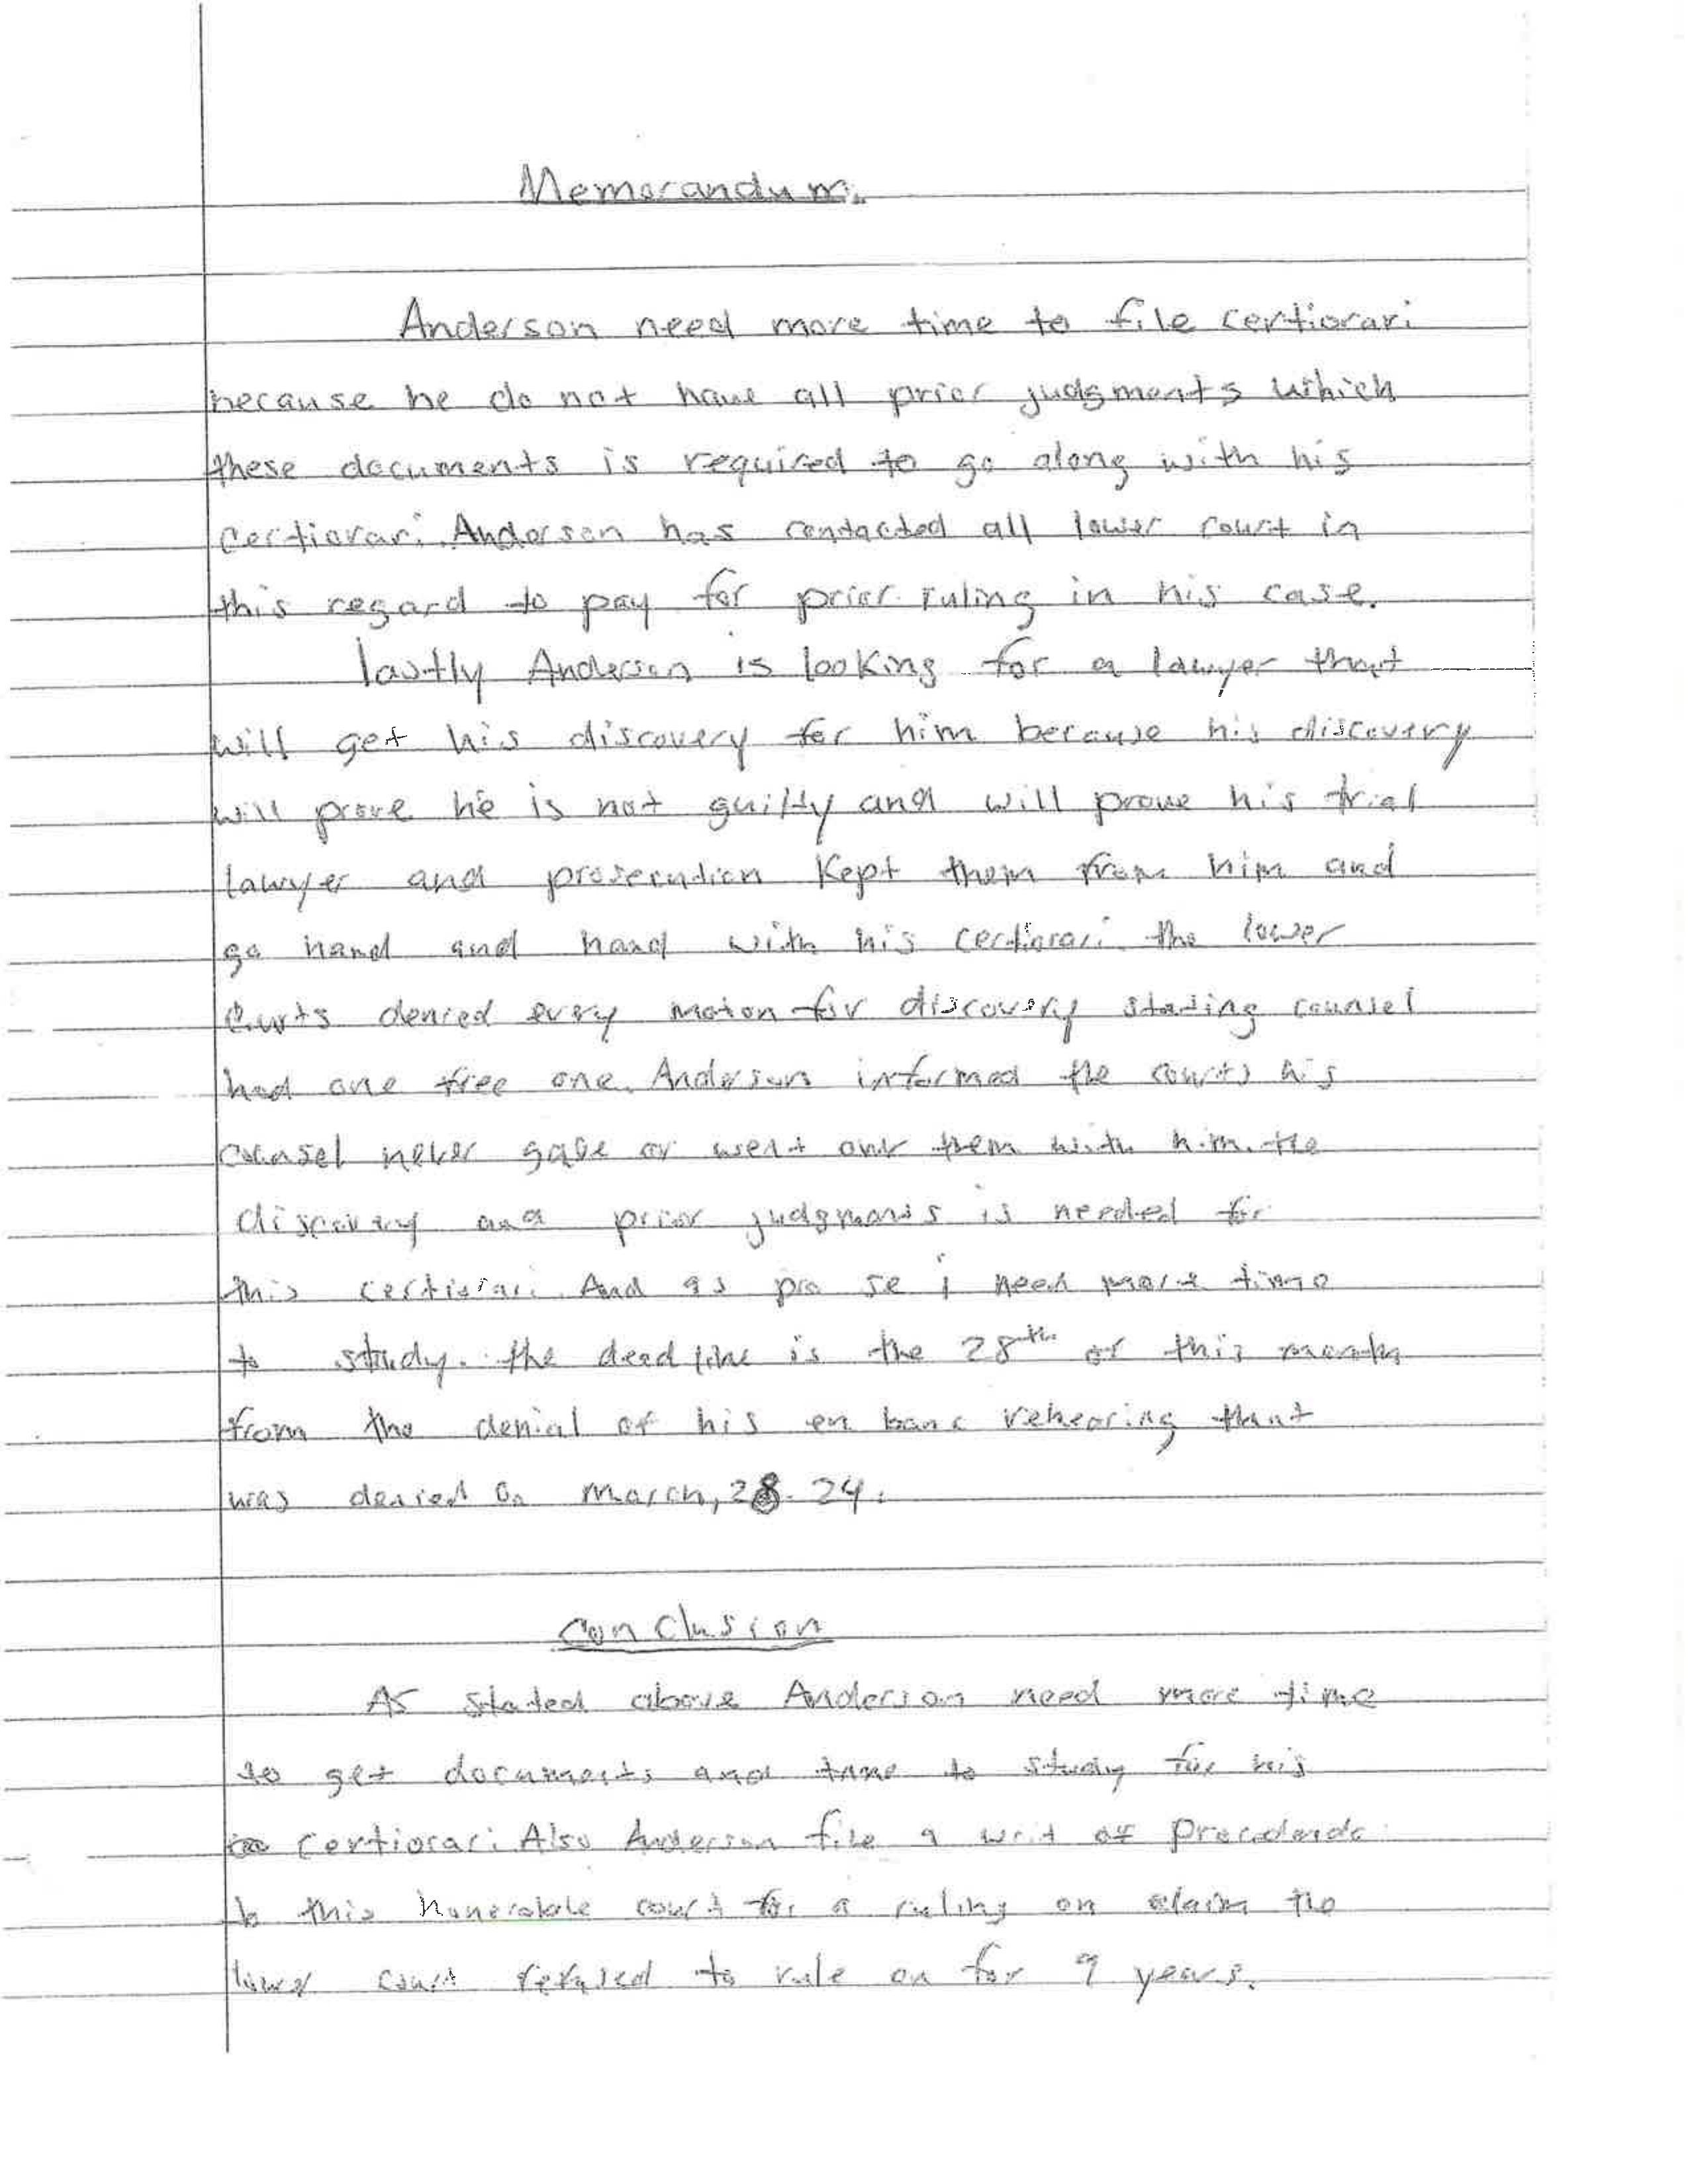 Memorandum.
Anderson need more time to file certiorari
because he do not have all prior judgments which
these documents is required to go along with his
certiorari. Anderson has contacted all lower court in
this regard to pay for prior ruling in his case.
lastly Anderson is looking for a lawyer that
will get his discovery for him because his discovery
will prove he is not guilty and will prove his trial
lawyer and prosecution kept them from him and
go hand and hand with his certiorari. the lower
Courts denied every motion for discovery stating counsel
had one free one. Anderson informed the courts his
counsel never gave or went over them with him. the
discovery and prior judgments is needed for
this certiorari. And as pro se i need more time
to study. the deadline is the 28th of this month
from the denial of his en banc rehearing that
was denied on march, 28. 24.
Conclusion
As stated above Anderson need more time
to get documents and time to study for his
certiorari. Also Anderson file a writ of
to this honerable court for a ruling on claim the
lower court refused to rule on for 9 years.